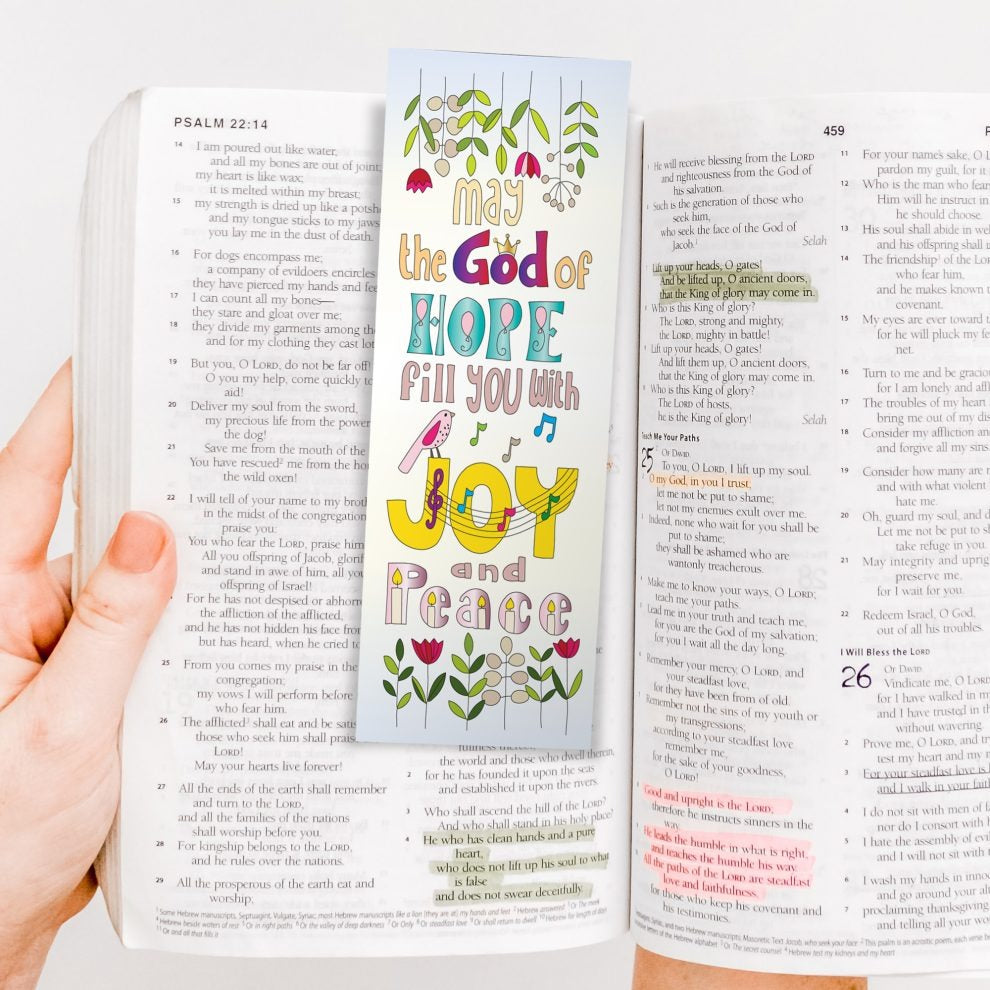 PSALM 22:14
14 I am poured out like water,
and all my bones are out of joint
my heart is like wax;
it is melted within my breast;
15 my strength is dried up like a
and my tongue sticks to my jaws
you lay me in the dust of death.
16 For dogs encompass me;
a company of evildoers encircles
they have pierced my hands and
17 I can count all my bones—
they stare and gloat over me;
18 they divide my garments among
and for my clothing they cast
19 But you, O LORD, do not be far off!
O you my help, come quickly to
aid!
20 Deliver my soul from the sword,
my precious life from the power
the dog!
21 Save me from the mouth of the
You have rescued² me from the
the wild oxen!
22 I will tell of your name to my
in the midst of the congregation
praise you:
You who fear the LORD, praise him
All you offspring of Jacob,
and stand in awe of him, all
offspring of Israel!
For he has not despised or
the affliction of the afflicted,
and he has not hidden his face
but has heard, when he cried
25 From you comes my praise in the
congregation;
my vows I will perform before
who fear him.
26 The afflicted³ shall eat and be
those who seek him shall
LORD!
May your hearts live forever!
27 All the ends of the earth shall remember
and turn to the LORD,
and all the families of the nations
shall worship before you.
28 For kingship belongs to the LORD,
and he rules over the nations.
29 All the prosperous of the earth eat and
worship;
may
the God of
HOPE
fill you with
JOY
and
Peace
the world and those who dwell therein,
2 for he has founded it upon the seas
and established it upon the rivers.
3 Who shall ascend the hill of the LORD?
And who shall stand in his holy place?
4 He who has clean hands and a pure
heart,
who does not lift up his soul to what
is false
and does not swear deceitfully.
459
He will receive blessing from the LORD
and righteousness from the God of
his salvation.
Such is the generation of those who
seek him,
who seek the face of the God of
Jacob.¹ Selah
Lift up your heads, O gates!
And be lifted up, O ancient doors,
that the King of glory may come in.
Who is this King of glory?
The LORD, strong and mighty,
the LORD, mighty in battle!
Lift up your heads, O gates!
And lift them up, O ancient doors,
that the King of glory may come in.
Who is this King of glory?
The LORD of hosts,
he is the King of glory! Selah
Teach Me Your Paths
25 OF DAVID.
To you, O LORD, I lift up my soul.
O my God, in you I trust;
let me not be put to shame;
let not my enemies exult over me.
Indeed, none who wait for you shall be
put to shame;
they shall be ashamed who are
wantonly treacherous.
Make me to know your ways, O LORD;
teach me your paths.
Lead me in your truth and teach me,
for you are the God of my salvation;
for you I wait all the day long.
Remember your mercy, O LORD, and
your steadfast love,
for they have been from of old.
Remember not the sins of my youth or
my transgressions;
according to your steadfast love
remember me,
for the sake of your goodness,
O LORD!
Good and upright is the LORD;
therefore he instructs sinners in the
way.
He leads the humble in what is right,
and teaches the humble his way.
All the paths of the LORD are steadfast
love and faithfulness,
for those who keep his covenant and
his testimonies.
11 For your name's sake, O
pardon my guilt, for it
12 Who is the man who
Him will he instruct in
he should choose.
13 His soul shall abide in
and his offspring shall
14 The friendship¹ of the
who fear him,
and he makes known
covenant.
15 My eyes are ever toward
for he will pluck my
net.
16 Turn to me and be
for I am lonely and
17 The troubles of my heart
bring me out of my
18 Consider my affliction and
and forgive all my sins.
19 Consider how many are
and with what violent
hate me.
20 Oh, guard my soul, and
Let me not be put to
take refuge in you.
21 May integrity and
preserve me,
for I wait for you.
22 Redeem Israel, O God,
out of all his troubles.
I Will Bless the LORD
26 OF DAVID.
Vindicate me, O LORD
for I have walked in
and I have trusted in
without wavering
2 Prove me, O LORD, and
test my heart and my
3 For your steadfast love is
and I walk in your
4 I do not sit with men of
nor do I consort with
5 I hate the assembly of
and I will not sit with
6 I wash my hands in
and go around your
7 proclaiming thanksgiving
and telling all your